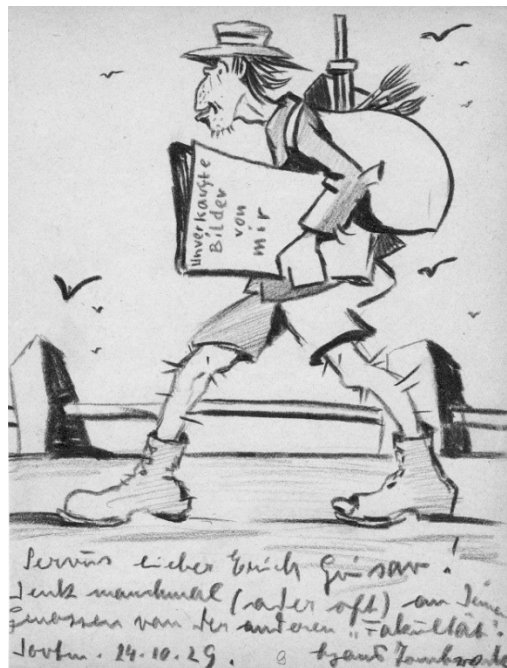 Unverkaufte
Bilder
von
mir
Servus lieber Erich Grisar!
Denk manchmal (oder oft) an deinen
Genossen von der anderen „Fakultät“.
Dortm. 24.10.29.